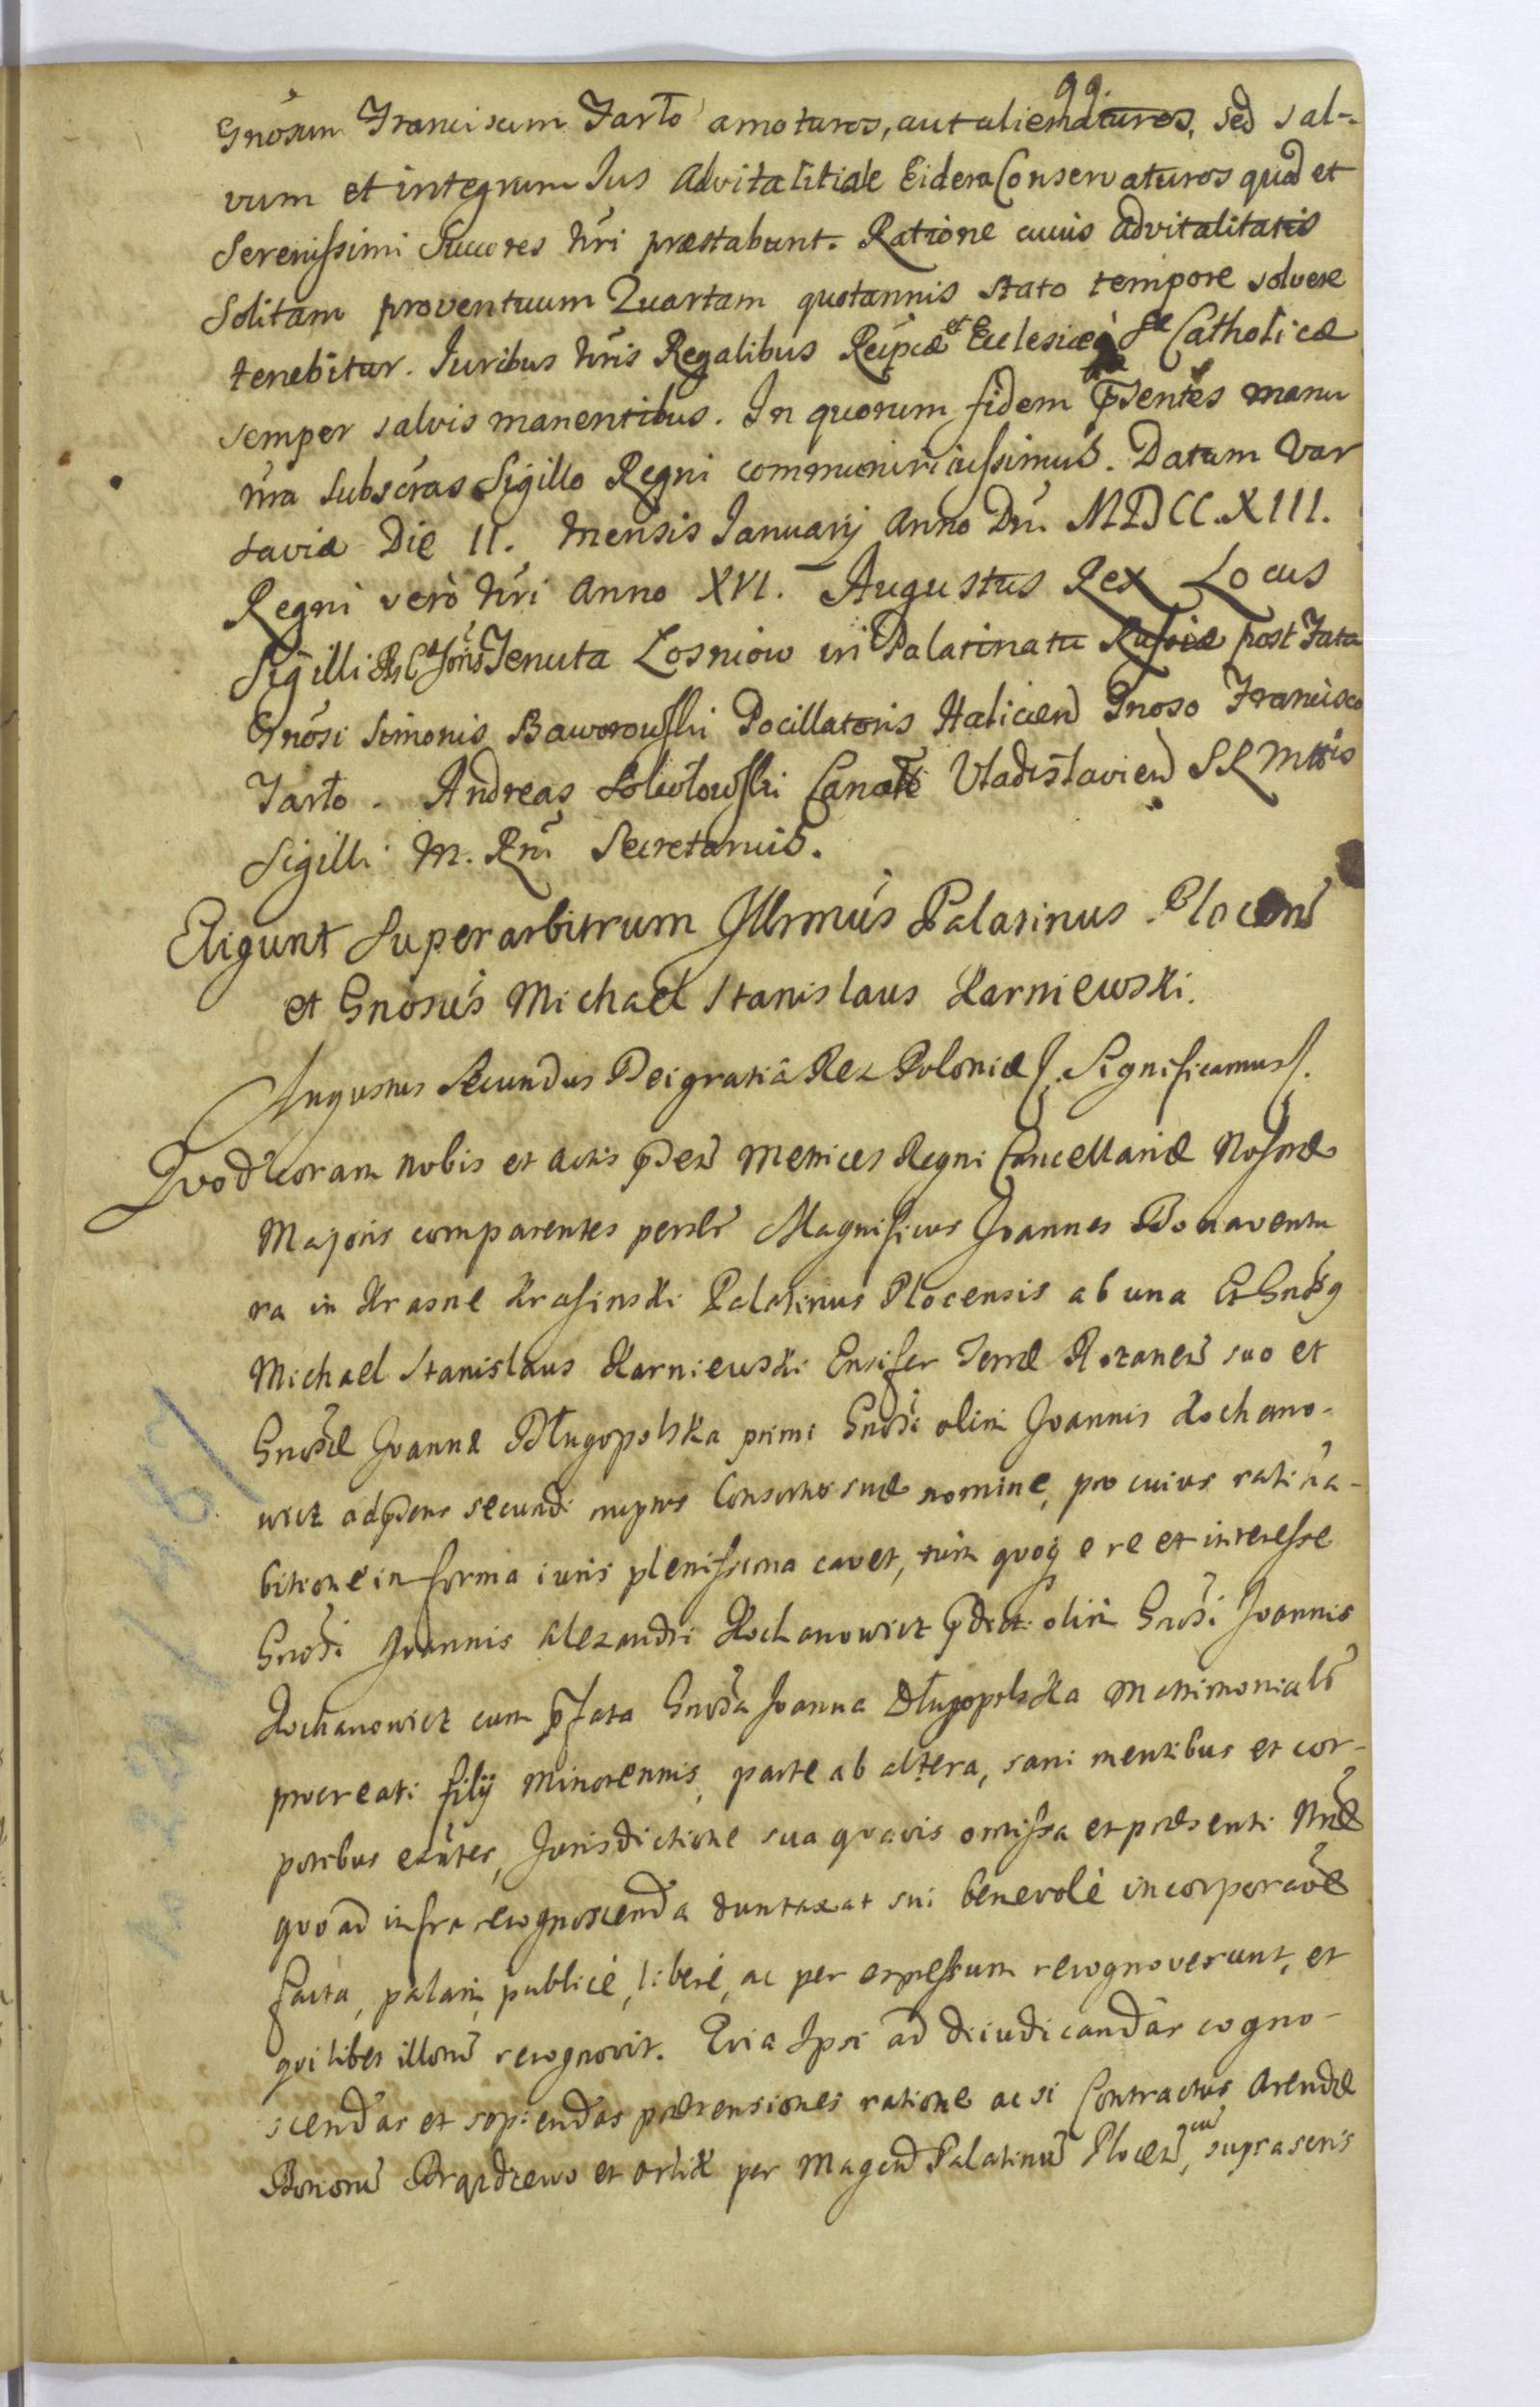 99.
Gnosum Franciscum Jarło amoturos, aut alienaturos, sed sal-
vum et integrum Jus advitalitiale Eidem Conservaturos quod et
Serenissimi Succores nri præstabunt. Ratione cuius advitalitatis
Solitam proventuum Quartam quotannis stato tempore solvere
tenebitur. Juribus nris Regalibus Reipcæ et Ecclesiæ Catholicæ
semper salvis manentibus. In quorum fidem pntes manu
nra subscras Sigillo Regni communiri iussimus. Datum Var
saviæ Die 11. mensis Januarij Anno Dni. MDCC.XIII.
Regni verò nri anno XVI. Augustus Rex Locus
Sigilli Tenuta Losniow in Palatinatu Russiæ post Fata
Gnosi Simonis Baworowski Pocillatoris Halicien Gnoso Francisco
Jarło. Andreas Canoc Vladislavien S R Mttis
Sigilli M. Rni Secretarius.
Eligunt Superarbitrum Illrmus Palatinus Plocen
et Gnosus Michael Stanislaus Karniewski.
Augustus Secundus Dei gratiâ Rex Poloniæ Significamus
Quod coram nobis et actis pden Metrices Regni Cancellariæ Nostræ
Majoris comparentes persler Magnificus Joannes Bonaventu
ra in Krasne Krasinski Palatinus Plocensis ab una Et Gnosus
Michael Stanislaus Karniewski Ensifer Terræ Rozanen suo et
Gnosæ Joannæ Długopolska primi Gnosi olim Joannis Kochano-
wicz adpdens secundi nuptus Consortis suæ nomine, pro cuius ratiha-
bitione in forma iuris plenissima cavet, tum quoq e re et interesse
Gnosi Joannis Alexandri Kochanowicz pdicti olim Gnosi Joannis
Kochanowicz cum pfata Gnosa Joanna Długopolska matrimonialr
procreati filij minorennis, parte ab altera, sani mentibus et cor-
poribus exntes, Jurisdictione sua quavis omissa et præsenti Nræ
quoad infra recognoscenda duntaxat sui benevolè incorporaõe
facta, palam, publicè, liberè, ac per expressum recognoverunt, et
quilibet illorum recognovit. Quia Ipsi ad diiudicandas cogno-
scendas et sopiendas prætensiones ratione ac si Contractus Arendæ
Bonorum et per Magcum Palatinum Plocen, cum suprascris